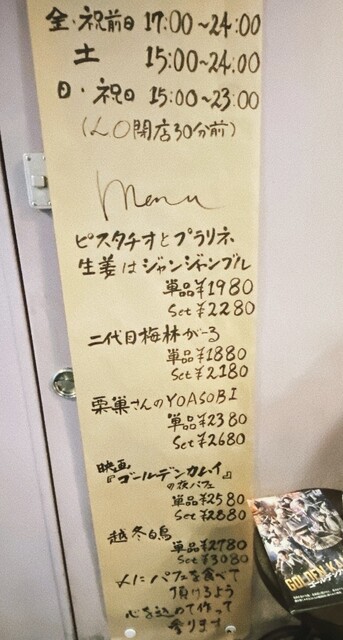 金・祝前日 17:00~24:00
土 15:00~24:00
日・祝日 15:00~23:00
(L.O閉店30分前)
Menu
ピスタチオとプラリネ
生姜はジャンジャンブル
単品¥1980
Set¥2280
二代目梅林がーる
単品¥1880
Set¥2180
栗巣さんのYOASOBI
単品¥2380
Set¥2680
映画
『ゴールデンカムイ』
の夜パフェ
単品¥2580
Set¥2880
越冬白鳥
単品¥2780
Set¥3080
〆にパフェを食べて
頂けるよう
心を込めて作って
参ります
GOLDEN KA
ゴールデンカ